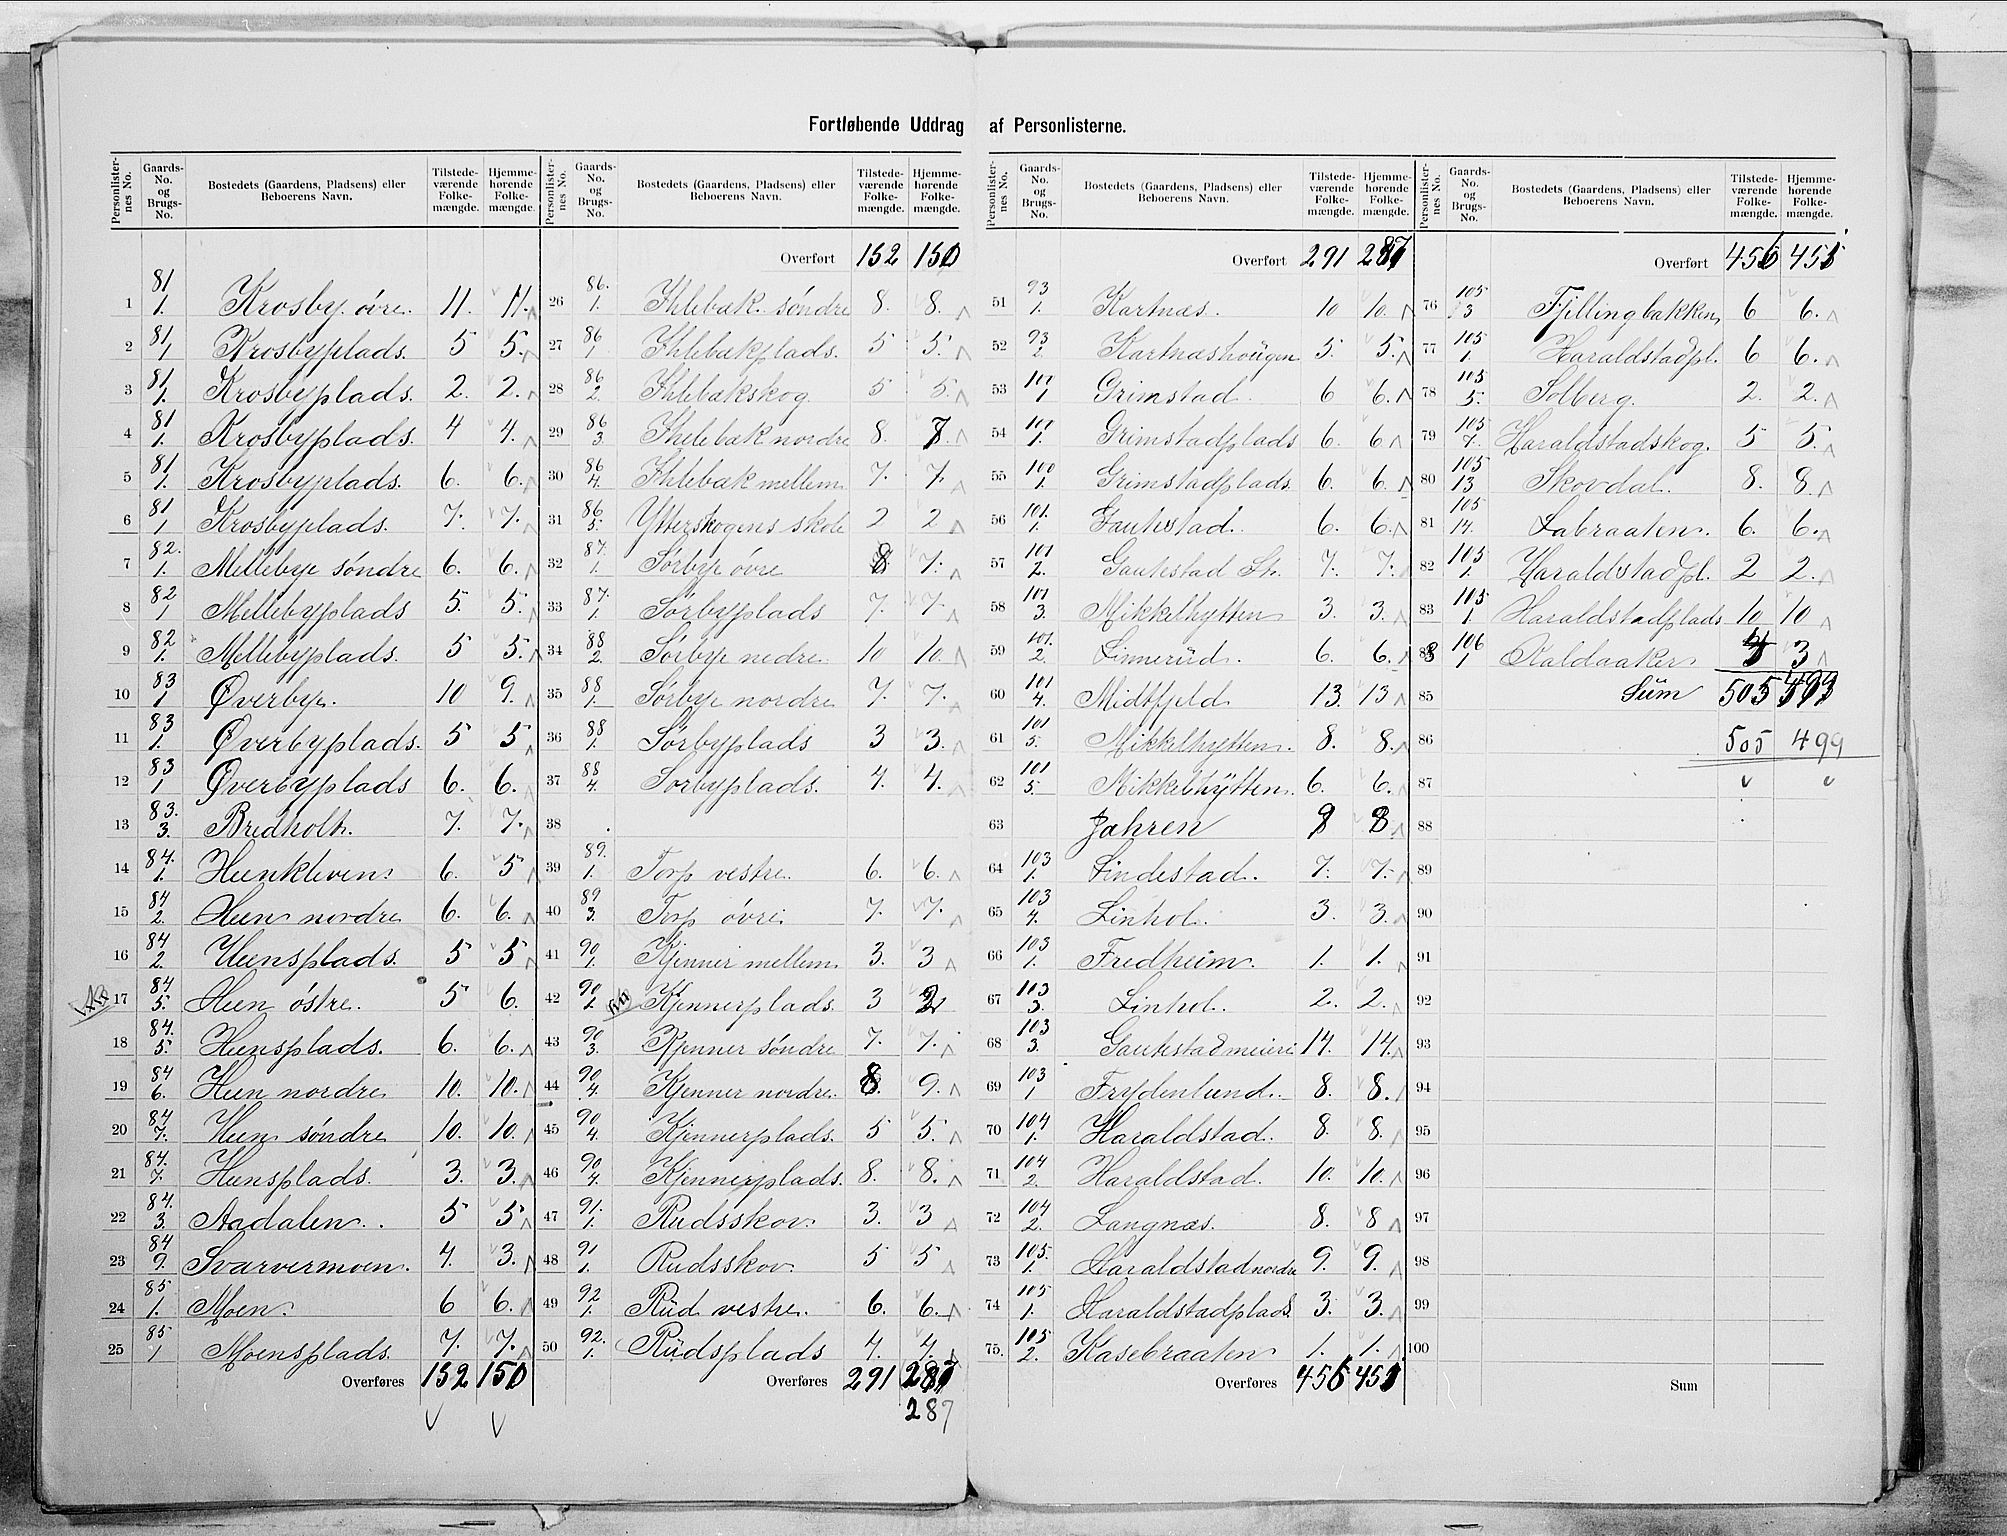 Fortløbende Uddrag af Personlisterne.
Personlister-nes No. | Gaards-No. og Brugs-No. | Bostedets (Gaardens, Pladsens) eller Beboerens Navn. | Tilstede-værende Folke-mængde. | Hjemme-hørende Folke-mængde.
1 81/1. Krosby øvre. 11. 11.
2 81/1 Krosbyplads. 5 5.
3 81/1. Krosbyplads. 2. 2.
4 81/1. Krosbyplads. 4 4.
5 81/1. Krosbyplads. 6. 6.
6 81/1 Krosbyplads. 7. 7.
7 82./1. Mellebye søndre 6. 6.
8 82/1 Mellebyplads 5. 5.
9 82/1. Mellebyplads. 5 5.
10 83/1 Øverbye. 10 9.
11 83/1. Øverbyplads. 5 5
12 83/1 Øverbyplads 6. 6.
13 83./3. Bredholt. 7. 7.
14 84./1. Heenkleven. 6. 5
15 84/2. Heen nordre 6. 6.
16 84/2. Heensplads. 5 5
17 84/5. Heen østre. 5 6.
18 84./5. Heensplads. 6. 6.
19 84/6. Heen nordre 10. 10.
20 84/7. Heen søndre 10. 10.
21 84./7. Heensplads. 3. 3.
22 84./3. Aadalen. 5 5
23 84/9. Svarvermoen. 4. 3.
24 85/1. Moen. 6 6.
25 85/1 Moensplads. 7. 7.
Overføres 152 150
Personlister-nes No. | Gaards-No. og Brugs-No. | Bostedets (Gaardens, Pladsens) eller Beboerens Navn. | Tilstede-værende Folke-mængde. | Hjemme-hørende Folke-mængde.
Overført 152 150
26 86./1. Ihlebæk søndre 8. 8.
27 86/1 Ihlebækplads. 5 5.
28 86/2. Ihlebækskog 5 5.
29 86/3. Ihlebæk nordre 8. 7
30 86/4. Ihlebæk mellem 7. 7.
31 86/5. Ytterskogens skole 2 2
32 87./1. Sørbye øvre 8 7.
33 87./1. Sørbyplads 7. 7.
34 88/2. Sørbye nedre 10 10.
35 88/1. Sørbye nordre 7. 7.
36 88/1. Sørbyplads 3 3.
37 88/4. Sørbyplads. 4. 4.
38
39 89./1. Torp vestre. 6. 6.
40 89/3. Torp øvre 7. 7.
41 90/1. Kjenner mellem 3. 3
42 90/1. Kjennerplads. 3 2
43 90/3. Kjenner søndre 7. 7.
44 90/4. Kjenner nordre. 8. 9.
45 90/4. Kjennerplads. 5 5.
46 90/4. Kjennerplads. 8. 8.
47 91./1. Rudsskov. 3. 3
48 91/1. Rudsskov. 5 5
49 92/1. Rud vestre. 6. 6.
50 92./1. Rudsplads 4. 4.
Overføres 291 287
287
Personlister-nes No. | Gaards-No. og Brugs-No. | Bostedets (Gaardens, Pladsens) eller Beboerens Navn. | Tilstede-værende Folke-mængde. | Hjemme-hørende Folke-mængde.
Overført 291 287
51 93/1. Kartnæs. 10 10.
52 93/2. Kartnæshougen 5. 5.
53 101/1 Grimstad. 6 6.
54 101/1. Grimstadplads 6. 6
55 100/1. Grimstadplads. 6. 6.
56 101./1. Gautestad. 6. 6.
57 101/2. Gautestad St. 7. 7.
58 101/3. Mikkelhytten 3. 3.
59 101./2. Linnerud. 6. 6.
60 101/4. Midtfjeld 13. 13
61 101/5. Mikkelhytten. 8. 8.
62 101/5. Mikkelhytten. 6. 6.
63 Jahren 8
64 103/1. Lindestad. 7. 7.
65 103/4. Linhol. 3. 3.
66 103/1. Fredheim. 1. 1.
67 103/3. Linhol. 2. 2.
68 103/3. Gautestad meieri 14. 14.
69 103/1 Frydenlund. 8. 8.
70 104/1. Haraldstad. 8. 8.
71 104/2. Haraldstad. 10. 10.
72 104/2. Langnæs. 8. 8
73 105./1. Haraldstad nordre 9. 9.
74 105/1. Haraldstadplads. 3. 3.
75. 105/2. Kasebraaten 1. 1.
Overføres 456 451
Personlister-nes No. | Gaards-No. og Brugs-No. | Bostedets (Gaardens, Pladsens) eller Beboerens Navn. | Tilstede-værende Folke-mængde. | Hjemme-hørende Folke-mængde.
Overført 456 451
76 105/3 Fjellingbakken 6 6.
77 105/1. Haraldstadpl. 6 6.
78 105/5. Solberg. 2. 2.
79 105/7. Haraldstadskog. 5 5.
80 105/13 Skovdal. 8. 8.
81 105/14. Labraaten. 6. 6.
82 105/1. Haraldstadpl. 2 2.
83 105/1. Haraldstadplads 10 10
106/1 Kaldaaker 3
85 Sum 505 499
86 505 499
87
88
89
90
91
92
93
94
95
96
97
98
99
100
Sum